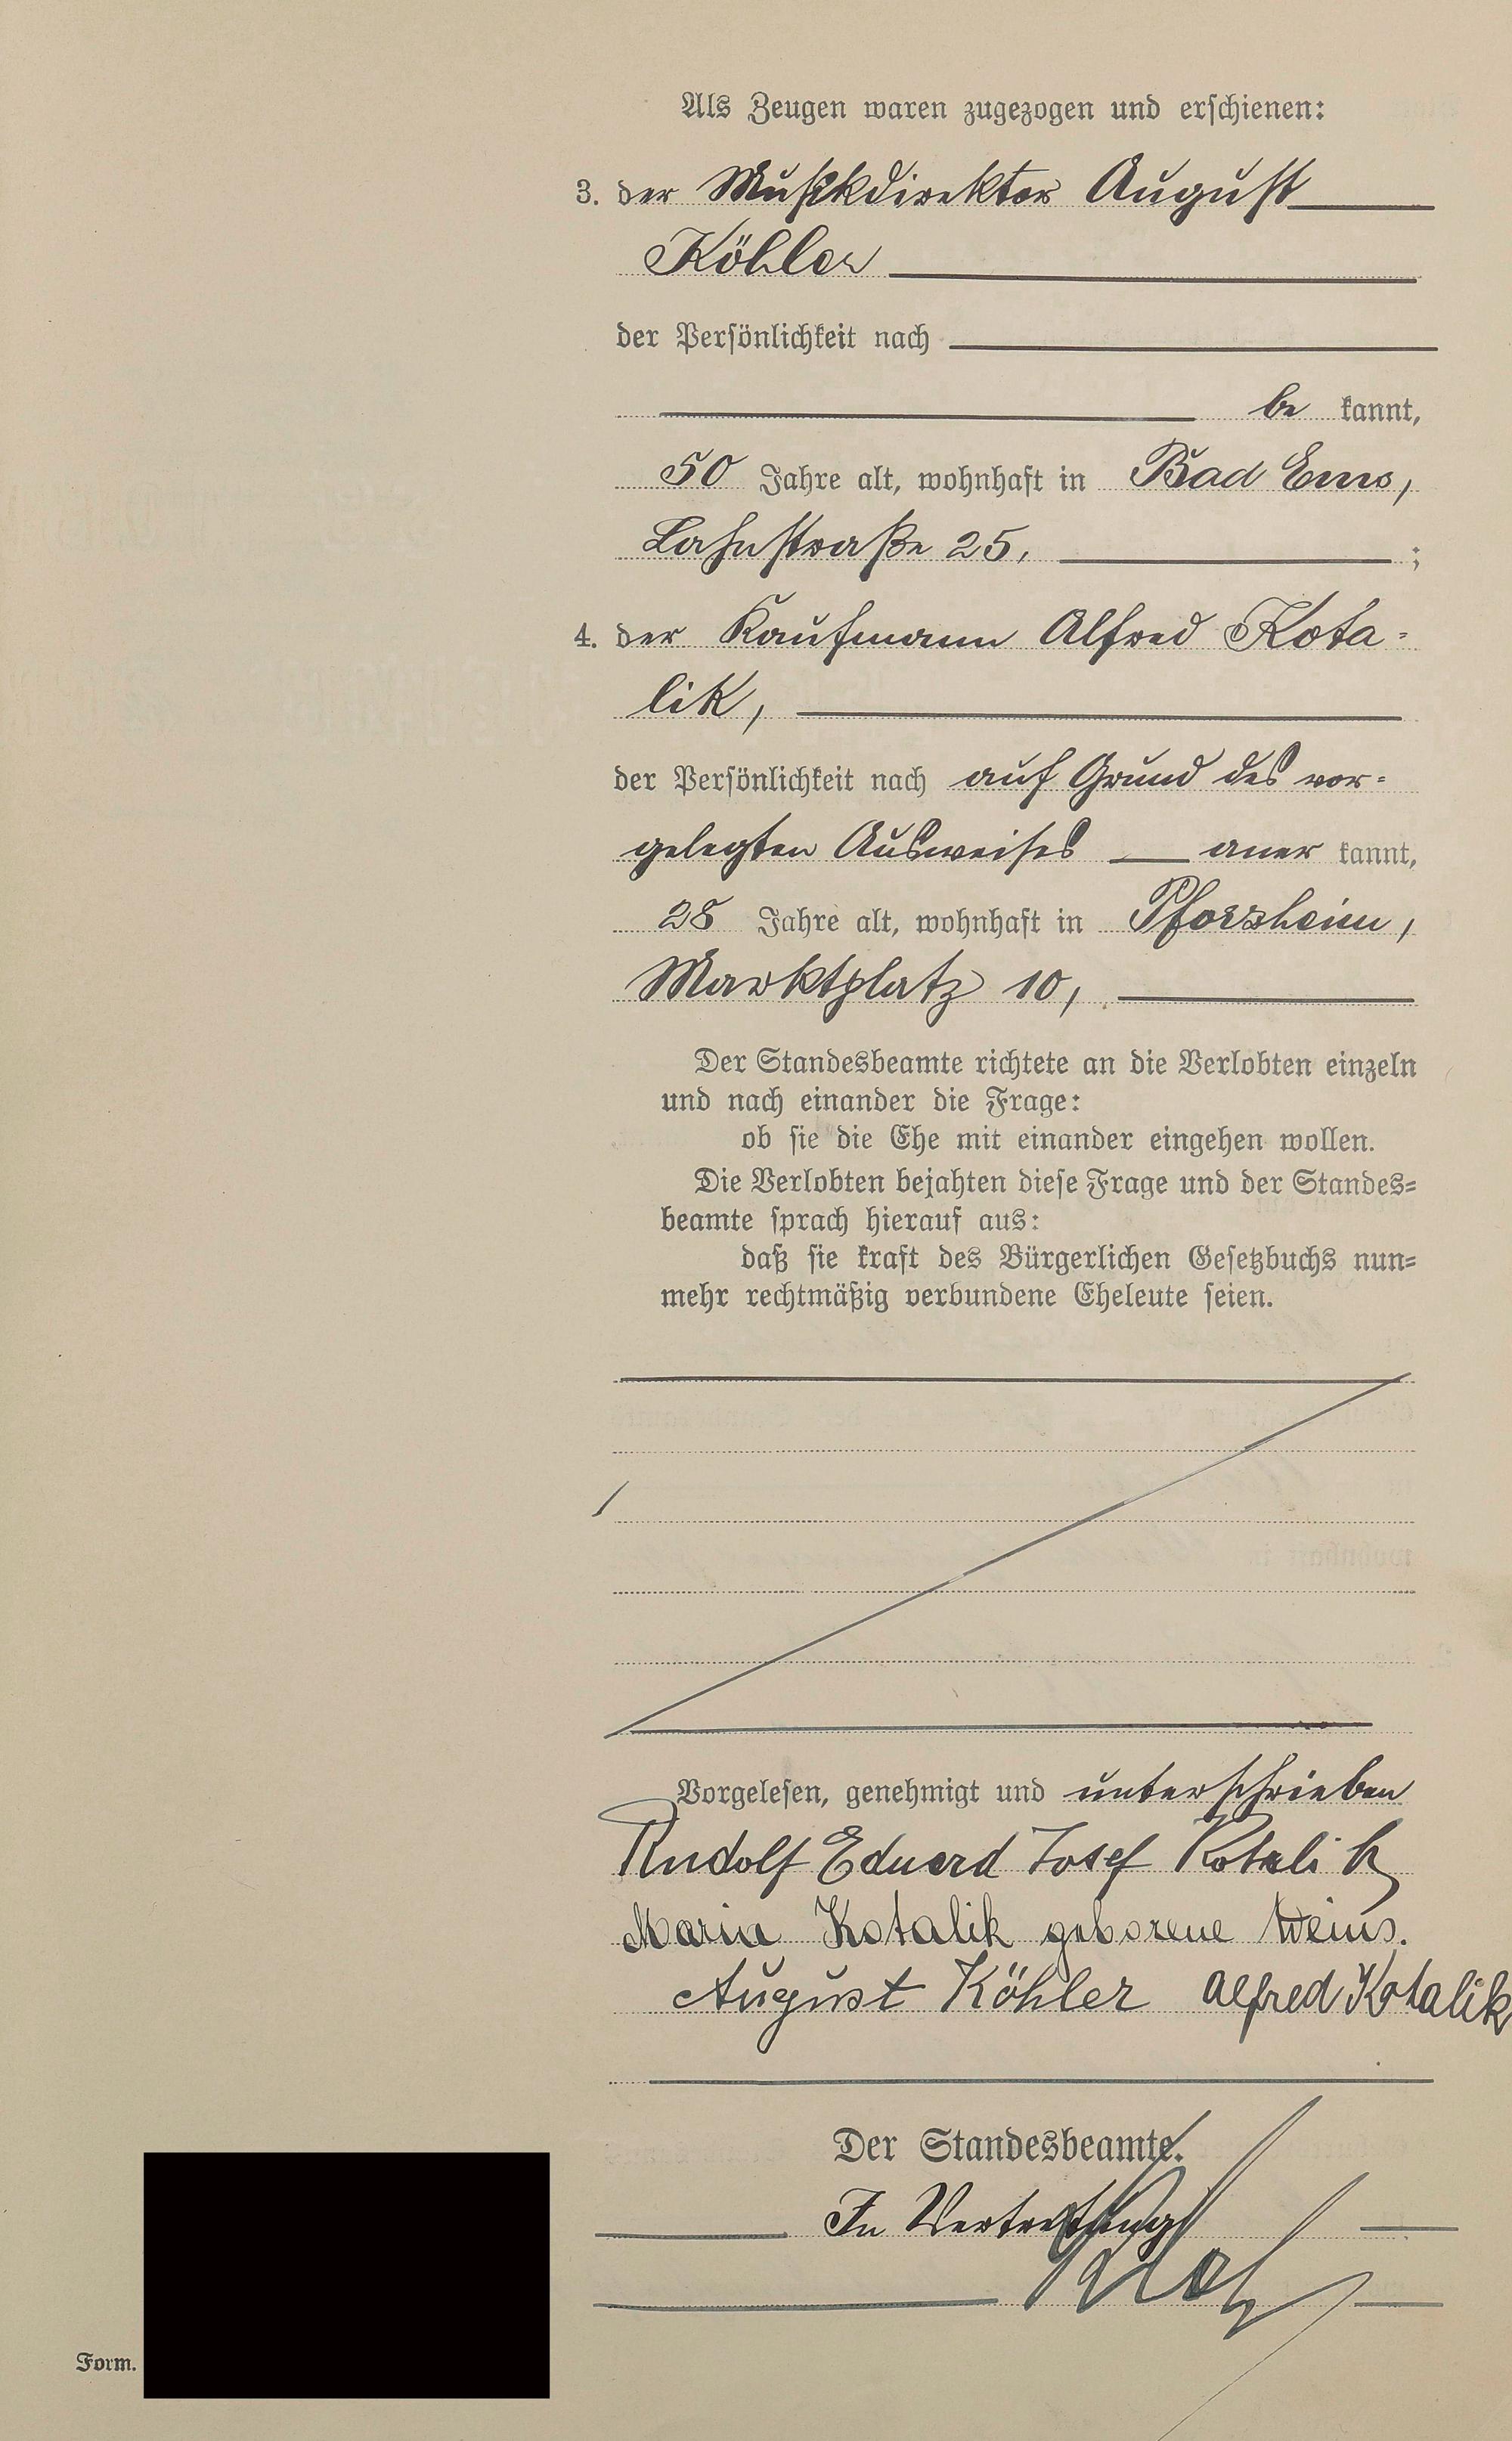 Als Zeugen waren zugezogen und erschienen:
3. der Musikdirektor August
Köhler
der Persönlichkeit nach
be kannt,
50 Jahre alt, wohnhaft in Bad Ems,
Lahnstraße 25, ;
4. der Kaufmann Alfred Kota-
lik,
der Persönlichkeit nach auf Grund des vor-
gelegten Ausweises aner kannt,
28 Jahre alt, wohnhaft in Pforzheim,
Marktplatz 10,
Der Standesbeamte richtete an die Verlobten einzeln
und nach einander die Frage:
ob sie die Ehe mit einander eingehen wollen.
Die Verlobten bejahten diese Frage und der Standes-
beamte sprach hierauf aus:
daß sie kraft des Bürgerlichen Gesetzbuchs nun-
mehr rechtmäßig verbundene Eheleute seien.
Vorgelesen, genehmigt und unterschrieben
Rudolf Eduard Josef Kotalik
Maria Kotalik geborene Weins.
August Köhler Alfred Kotalik
Der Standesbeamte.
In Vertretung
Form.